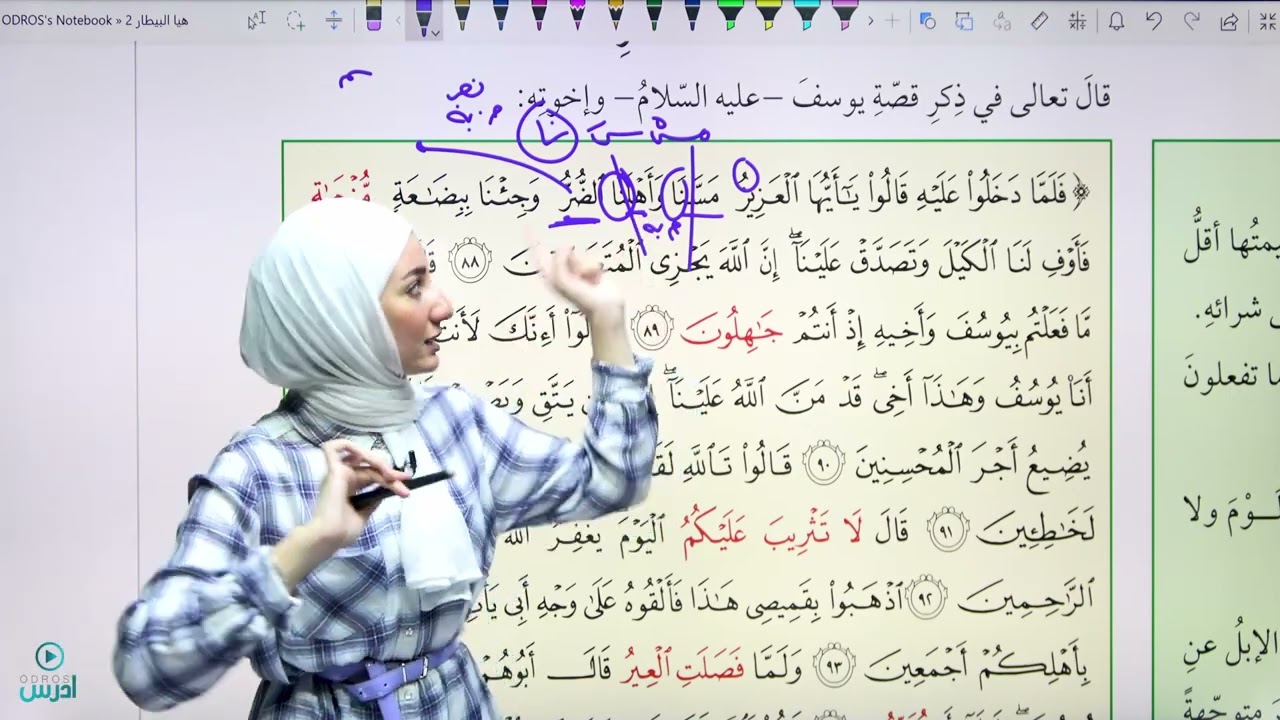 ODROS's Notebook » 2 هيا البيطار
قالَ تعالى في ذِكرِ قصّةِ يوسفَ –عليه السّلامُ– وإخوتِه:
نا
فَلَمَّا دَخَلُواْ عَلَيْهِ قَالُواْ يَٰٓأَيُّهَا ٱلْعَزِيزُ مَسَّنَا وَأَهْلَنَا ٱلضُّرُّ وَجِئْنَا بِبِضَٰعَةٍ مُّزْجَىٰةٍ
فَأَوْفِ لَنَا ٱلْكَيْلَ وَتَصَدَّقْ عَلَيْنَآ ۖ إِنَّ ٱللَّهَ يَجْزِى ٨٨
مَّا فَعَلْتُم بِيُوسُفَ وَأَخِيهِ إِذْ أَنتُمْ جَٰهِلُونَ ٨٩ أَءِنَّكَ
أَنَا۠ يُوسُفُ وَهَٰذَآ أَخِى ۖ قَدْ مَنَّ ٱللَّهُ عَلَيْنَآ ۖ يَتَّقِ
يُضِيعُ أَجْرَ ٱلْمُحْسِنِينَ ٩٠ قَالُواْ تَٱللَّهِ
لَخَٰطِـِٔينَ ٩١ قَالَ لَا تَثْرِيبَ عَلَيْكُمُ ٱلْيَوْمَ يَغْفِرُ ٱللَّهُ
ٱلرَّٰحِمِينَ ٩٢ ٱذْهَبُواْ بِقَمِيصِى هَٰذَا فَأَلْقُوهُ عَلَىٰ وَجْهِ أَبِى
بِأَهْلِكُمْ أَجْمَعِينَ ٩٣ وَلَمَّا فَصَلَتِ ٱلْعِيرُ قَالَ أَبُوهُمْ
يمتُها أقلُّ
شرائهِ.
ما تفعلونَ
ولا
الإبلُ عنِ
متوجّهةً
ODROS
ادرس